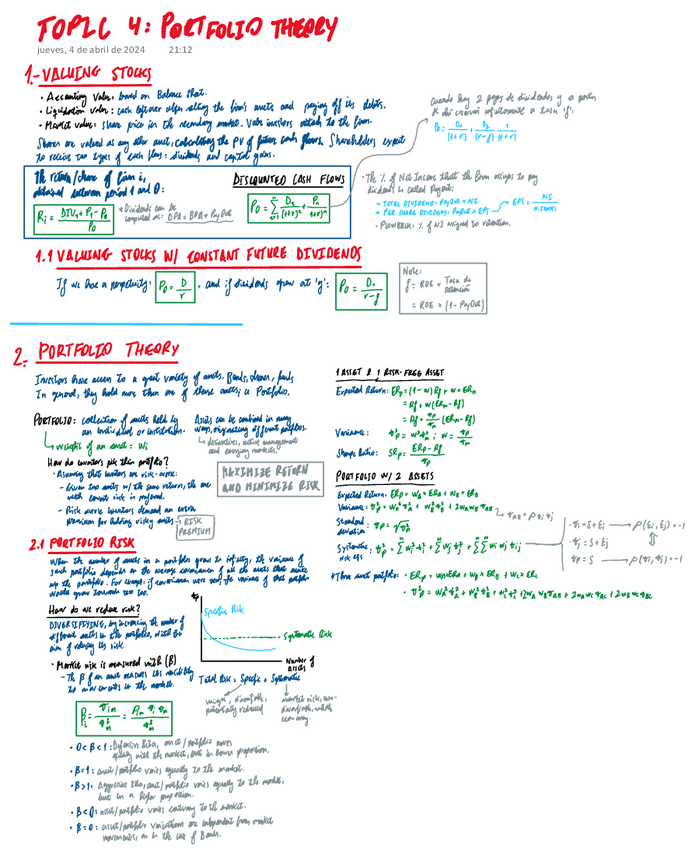 TOPIC 4: PORTFOLIO THEORY
jueves, 4 de abril de 2024 21:12
1.- VALUING STOCKS
· Accounting Value: based on Balance Sheet.
· Liquidation value: cash leftover after selling the firm's assets and paying off its debts.
· Market value: share price in the secondary market. Value investors attach to the firm.
Shares are valued as any other asset, calculating the PV of future cash flows. Shareholders expect
to receive two types of cash flows: dividends and capital gains.
Cuando hay 2 pagos de dividendos y a partir
The return/share of firm i,
obtained between period 1 and 0:
Ri = (DIV1 + P1 - P0) / P0
Dividends can be
computed as: DPA = BPA × PayOut
DISCOUNTED CASH FLOWS
· The % of Net Income that the firm assigns to pay
dividends is called Payout:
→ TOTAL DIVIDEND: PayOut × NI
→ PER SHARE DIVIDEND: PayOut × EPS
· PLOWBACK: % of NI assigned to retention.
1.1 VALUING STOCKS W/ CONSTANT FUTURE DIVIDENDS
If we have a perpetuity: P0 = D / r, and if dividends grow at 'g': P0 = D1 / (r-g)
Note:
g = ROE × Tasa de retención
= ROE × (1 - PayOut)
2. PORTFOLIO THEORY
Investors have access to a great variety of assets. Bonds, shares, funds
In general, they hold more than one of those assets; a Portfolio.
PORTFOLIO: collection of assets held by
an individual or institution.
↳ Weight of an asset = Wi
Assets can be combined in many
ways, originating different portfolios.
↳ derivatives, active management
and emerging markets.
How do investors pick their portfolio?
- Assuming that investors are risk-averse:
- Given two assets w/ the same return, the one
with lowest risk is preferred.
- Risk averse investors demand an extra
premium for holding risky assets → RISK
PREMIUM
MAXIMIZE RETURN
AND MINIMIZE RISK
2.1 PORTFOLIO RISK
When the number of assets in a portfolio grows to infinity, the variance of
such portfolio depends on the average covariance of all the assets that make
up the portfolio. For example: if covariance were zero, the variance of that portfolio
would grow towards zero too.
How do we reduce risk?
DIVERSIFYING, by increasing the number of
different assets in the portfolio, with the
aim of reducing its risk
- Market risk is measured with (β)
- The β of an asset measures its sensibility
to movements in the market.
Specific Risk
Systematic Risk
Number of
Assets
Total Risk = Specific + Systematic
unique, diversifiable,
potentially reduced
market risk, non-
diversifiable, whole
economy.
βi = σim / σm² = ρim σi σm / σm²
· 0 < β < 1: Defensive Beta, asset/portfolio moves
equally with the market, but in lower proportion.
· β = 1: asset/portfolio varies equally to the market.
· β > 1: Aggressive Beta, asset/portfolio varies equally to the market,
but in a higher proportion.
· β < 0: asset/portfolio varies contrary to the market.
· β = 0: asset/portfolio variations are independent from market
movements, as in the case of Bonds.
1 ASSET & 1 RISK-FREE ASSET
Expected Return: ERp = (1-w) Rf + w ERm
= Rf + w (ERm - Rf)
= Rf + σp/σm (ERm - Rf)
Variance: σp² = w² σm² ; w = σp/σm
Sharpe Ratio: SRp = (ERp - Rf) / σp
PORTFOLIO W/ 2 ASSETS
Expected Return: ERp = WA ERA + WB ERB
Variance: σp² = WA² σA² + WB² σB² + 2WA WB σAB
Standard
deviation σp = √σp²
Systematic
risk
* Three asset portfolio: · ERp = WA ERA + WB ERB + WC ERC
· σp² = WA² σA² + WB² σB² + WC² σC² + 2WA WB σAB + 2WA WC σAC + 2WB WC σBC